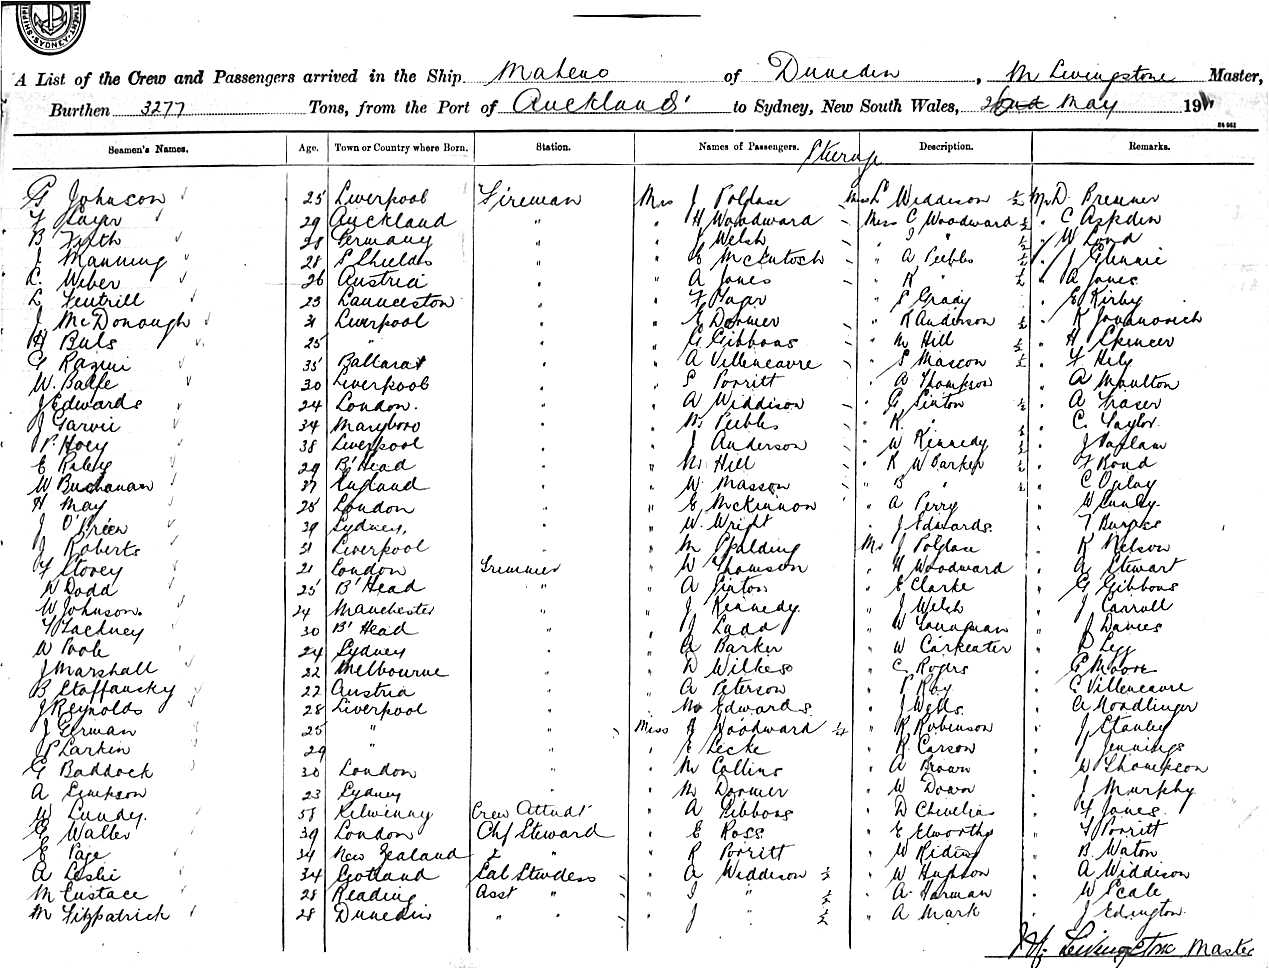 SHIPPING
DEPARTMENT, SYDNEY.
A List of the Crew and Passengers arrived in the Ship Maheno of Dunedin, M Livingstone Master,
Burthen 3277 Tons, from the Port of Auckland to Sydney, New South Wales, May 19
Seamen's Names. Age. Town or Country where Born. Station. Names of Passengers. Description. Remarks.
Steerage
G Johnson 25 Liverpool Fireman Mrs J Polglase Miss L Widdison ½ Mr D. Bremner
29 Auckland " " H Woodward Miss C Woodward ½ " C Aspden
B Frith 28 Germany " " J Welsh " I " ½ " W Lond
J Manning 28 S Shields " " E McKintosh " A Peebles ½ " J
C. Weber 26 Austria " " A Jones " K " ½ " A Jones
L Fentrill 23 Launceston " " F Pagar " S Grady " E Kirby
J McDonough 31 Liverpool " " E Dormer " R Anderson ½ " K Jovanovich
H Buls 25 " " " G Gibbons " M Hill ½ " H Spencer
G Razini 35 Ballarat " " A Villeneauve " S Masson ½ " F Hily
W. Balfe 30 Liverpool " " S Porritt " A Thompson " A Moulton
J Edwards 24 London. " " A Widdison " G Sinton ½ " A Fraser
J Garvie 34 Maryboro " " M Peebles " K. " ½ " C. Taylor
P. Hoey 38 Liverpool " " J Anderson " W Kennedy ½ " J
E Raley 29 B'Head " " M Hill " R W Barker ½ " F Bond
W Buchanan 27 England " " W Masson " B " ½ " C
H May 25 London " " E McKinnon " A Perry "
J O'Brien 39 Sydney, " " W. Wright " J Edwards. " T Burgess
J Roberts 31 Liverpool " " M Spalding Mr J Polglase " R Nelson
F Storey 21 London Trimmer " W Thomson " H Woodward " A Stewart
W Dodd 25 B'Head " " A Sinton " E Clarke " G Gibbons
W Johnson. 24 Manchester " " J Kennedy " J Welsh " J Carroll
F Lackney 30 B'Head " " J Ladd " W Lanagman " J Davies
W Poole 24 Sydney " " A Barker " W Carkeater " Legg
J Marshall 22 Melbourne " " D Wilkes " C Rogers " G Moore
B Staffansky 22 Austria " " A Peterson " P Ray " E Villeneauve
J Reynolds 28 Liverpool " " M Edwards " J Wells. " A Hoadlinger
J German 25 " " Miss A Woodward ½ " R Robinson " J Stanley
P Larkin 29 " " " E Lecke " R. Carson " J Jennings
G Baddock 30 London " " M Collins " A Brown " W Thompson
A Simpson 23 Sydney " " M Dormer " W Down " J Murphy
W Lundy. 51 Kilwinny Crew Attendt " A Gibbons " D " F Jones
G Walter 39 London Chf Steward " E Ross " E Elworthy " F Porritt
E Page 34 New Zealand 2 " " R Porritt " W Riding " B Waton
A Leslie 34 Gotland Sal Stwdess " A Widdison ½ " W Hudson " A Widdison
M Eustace 28 Reading Asst " " I " ½ " A. Harman " W Scale
M Fitzpatrick 28 Dunedin " " " J " ½ " A Mark " J Edington
M. Livingstone Master